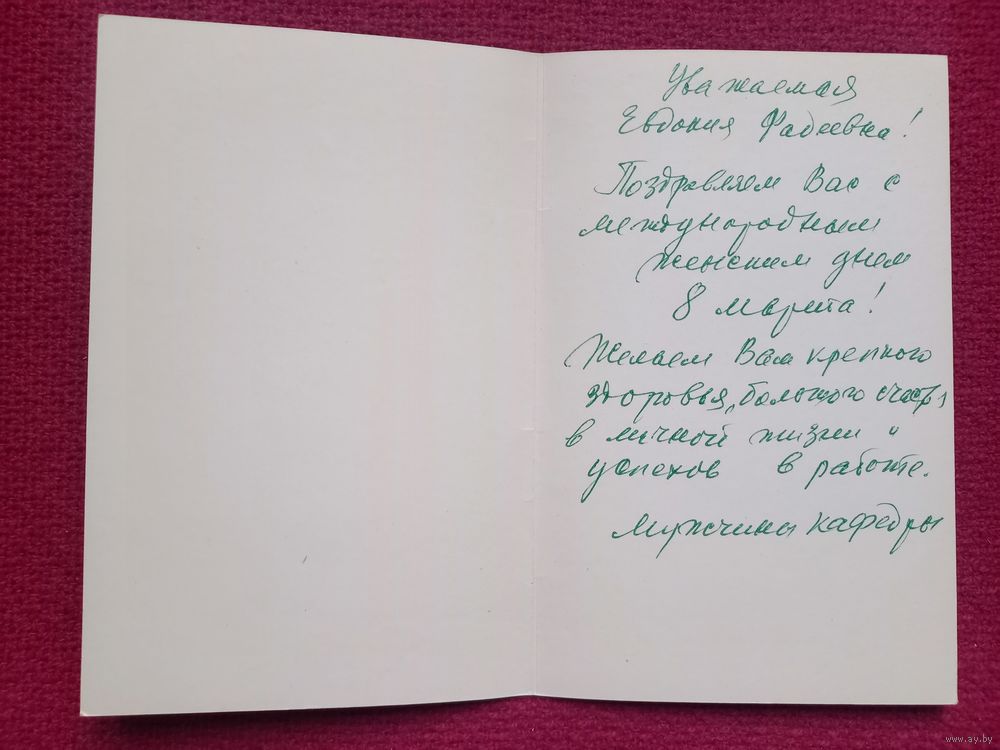 Уважаемая
Евдокия Фадеевна!
Поздравляем Вас с
международным
женским днем
8 марта!
Желаем Вам крепкого
здоровья, большого счастья
в личной жизни и
успехов в работе.
Мужчины кафедры
www.ay.by